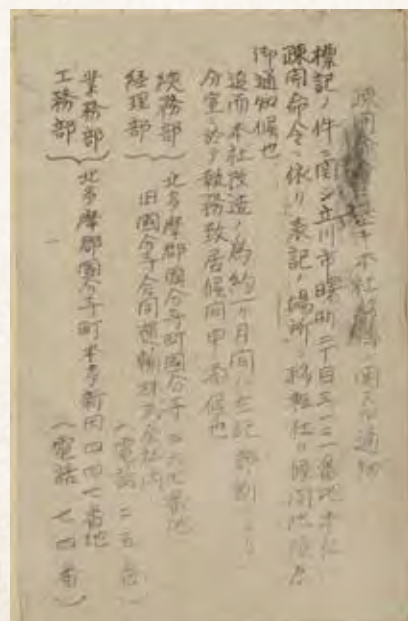 疎開命令ニ基キ本社移転ニ関スル通知
標記ノ件ニ関シ立川市曙町二丁目三一二一番地本社
疎開命令ニ依リ表記ノ場所ニ移転
御通知候也
追而本社改造ノ為約一ヶ月間ハ左記部別ニヨリ
分室ニ於テ執務致居候間申添候也
総務部 経理部 北多摩郡国分寺町国分寺二六七番地
旧国分寺合同運輸株式会社内
(電話 二五番)
業務部 工務部 北多摩郡国分寺町本多新田四四七番地
(電話 七四番)